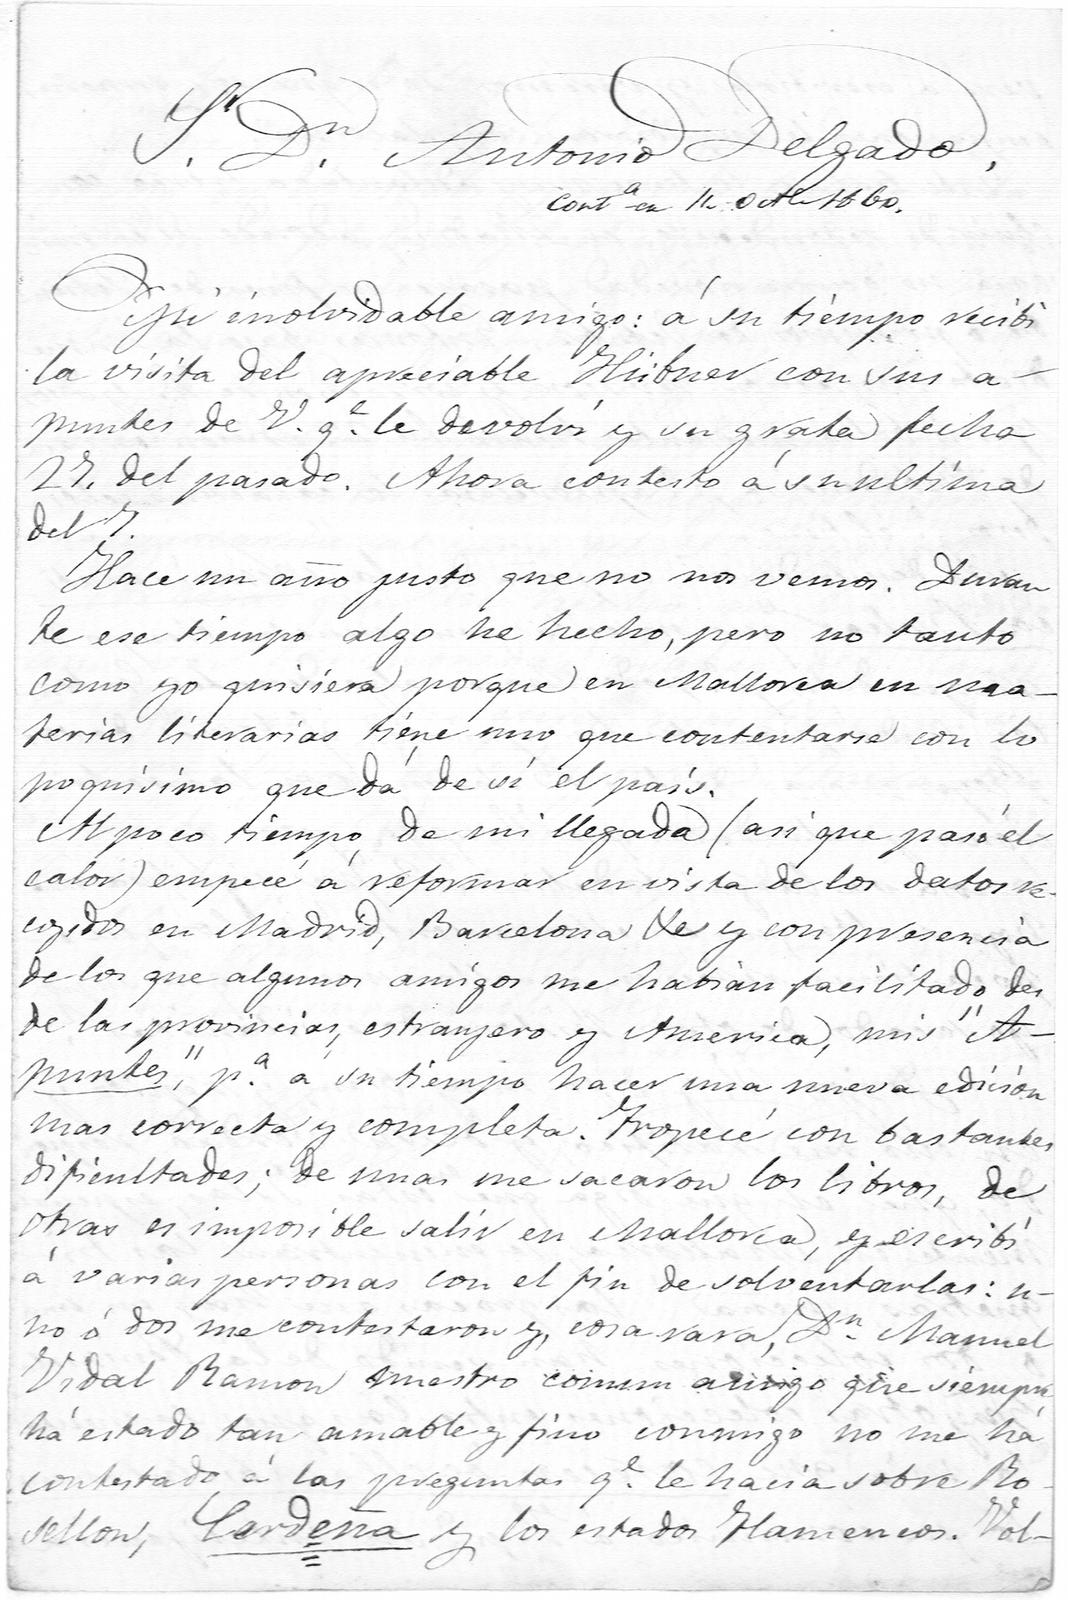 Sr. Dn. Antonio Delgado,
contª en 11 octe 1860.
Mi inolvidable amigo: á su tiempo recibí
la visita del apreciable Hübner con sus a-
puntes de V. qe. le devolví y su grata fecha
27. del pasado. Ahora contesto á su última
del 7.
Hace un año justo que no nos vemos. Duran
te ese tiempo algo he hecho, pero no tanto
como yo quisiera porque en Mallorca en ma-
terias literarias tiene uno que contentarse con lo
poquísimo que dá de sí el país.
Al poco tiempo de mi llegada (asi que pasó el
calor) empecé á reformar en vista de los datos re-
cogidos en Madrid, Barcelona &e y con presencia
de los que algunos amigos me habian facilitado des
de las provincias, estranjero y America, mis "A-
puntes", pª á su tiempo hacer una nueva edición
mas correcta y completa. Tropecé con bastantes
dificultades; de unas me sacaron los libros, de
otras es imposible salir en Mallorca, y escribí
á varias personas con el fin de solventarlas: u-
no ó dos me contestaron y, cosa rara, Dn. Manuel
Vidal Ramon nuestro comun amigo que siempre
há estado tan amable y fino conmigo no me há
contestado á las preguntas qe. le hacia sobre Ro-
sellon, Cerdeña y los estados Flamencos. Vol-